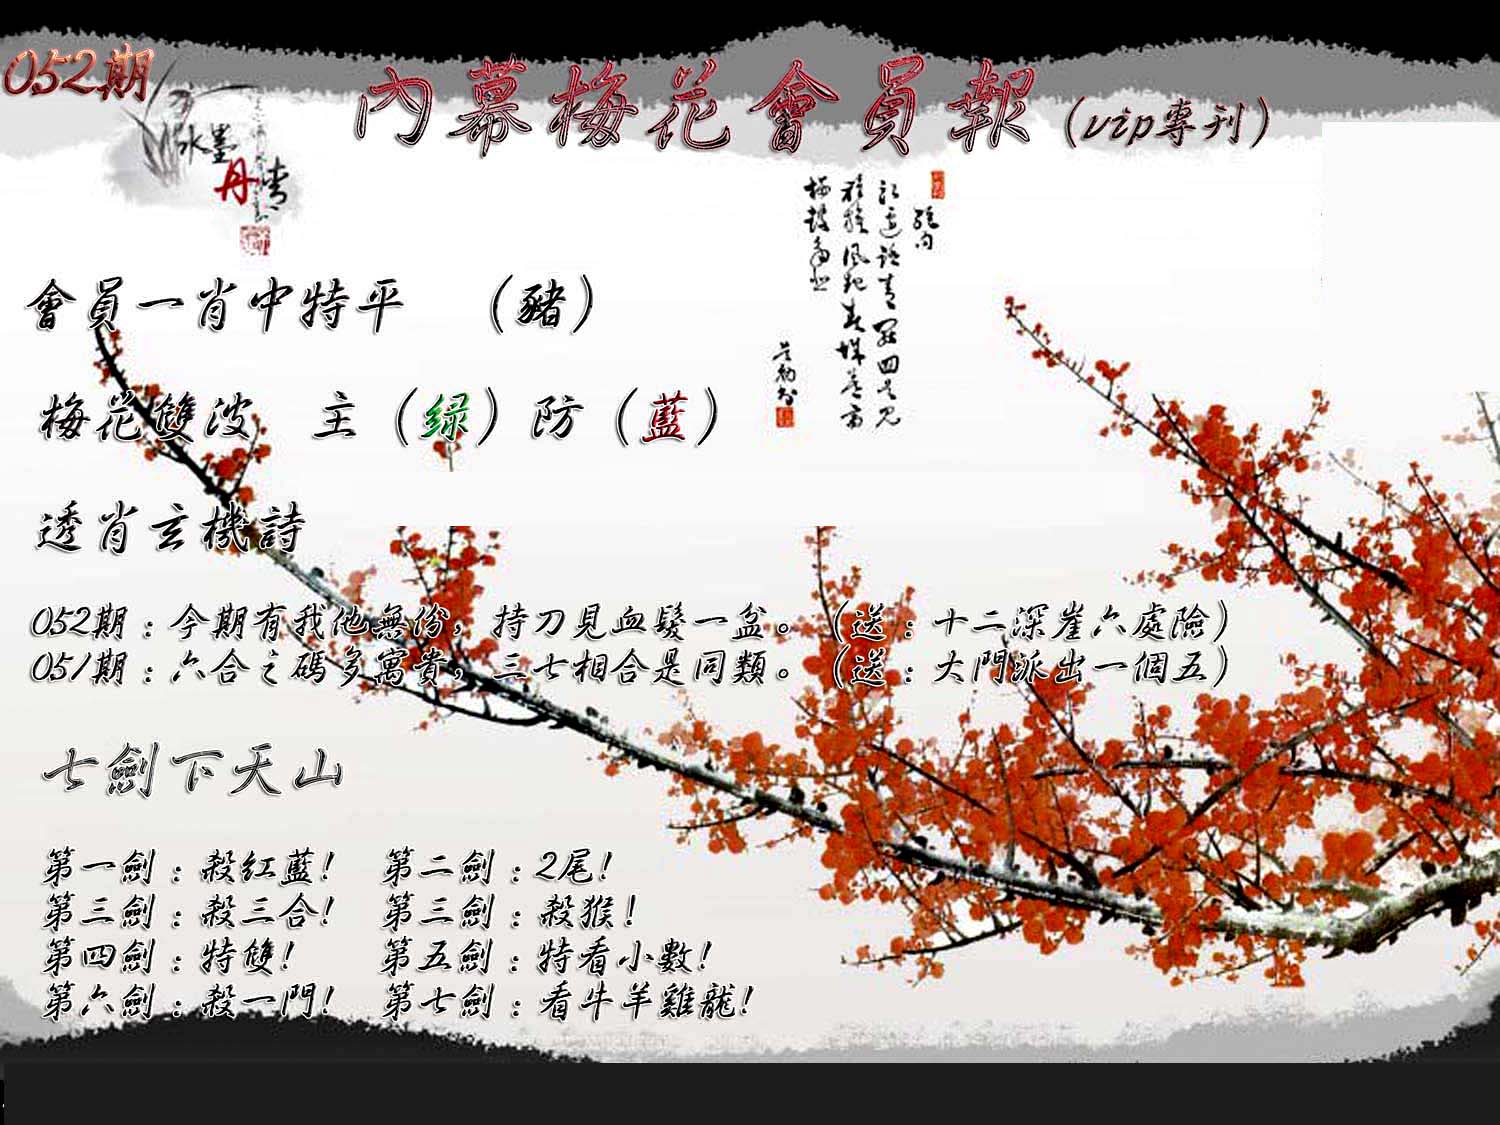 052期
內幕梅花會員報(vip專刊)
水墨
丹青
會員一肖中特平 (豬)
梅花雙波 主(绿)防(藍)
透肖玄機詩
052期:今期有我他無份,持刀見血髮一盆。(送:十二深崖六處險)
051期:六合之碼多寓貴,三七相合是同類。(送:大門派出一個五)
七劍下天山
第一劍:殺红藍! 第二劍:2尾!
第三劍:殺三合! 第三劍:殺猴!
第四劍:特雙! 第五劍:特看小數!
第六劍:殺一門! 第七劍:看牛羊雞龍!